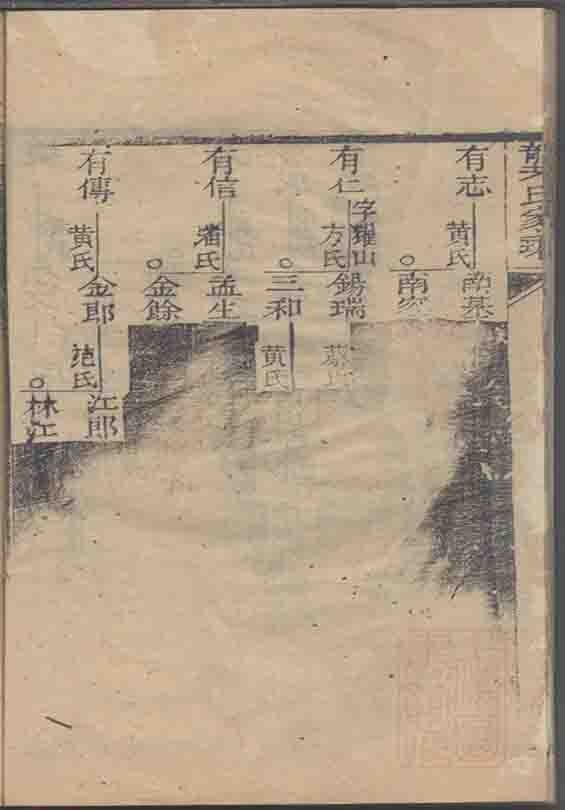 龔氏家
有志
黄氏
南基
南
有仁
字耀山
方氏
錫瑞
三和
黄氏
有信
潘氏
孟生
金餘
有傳
黄氏
金郎
范氏
江郎
林江